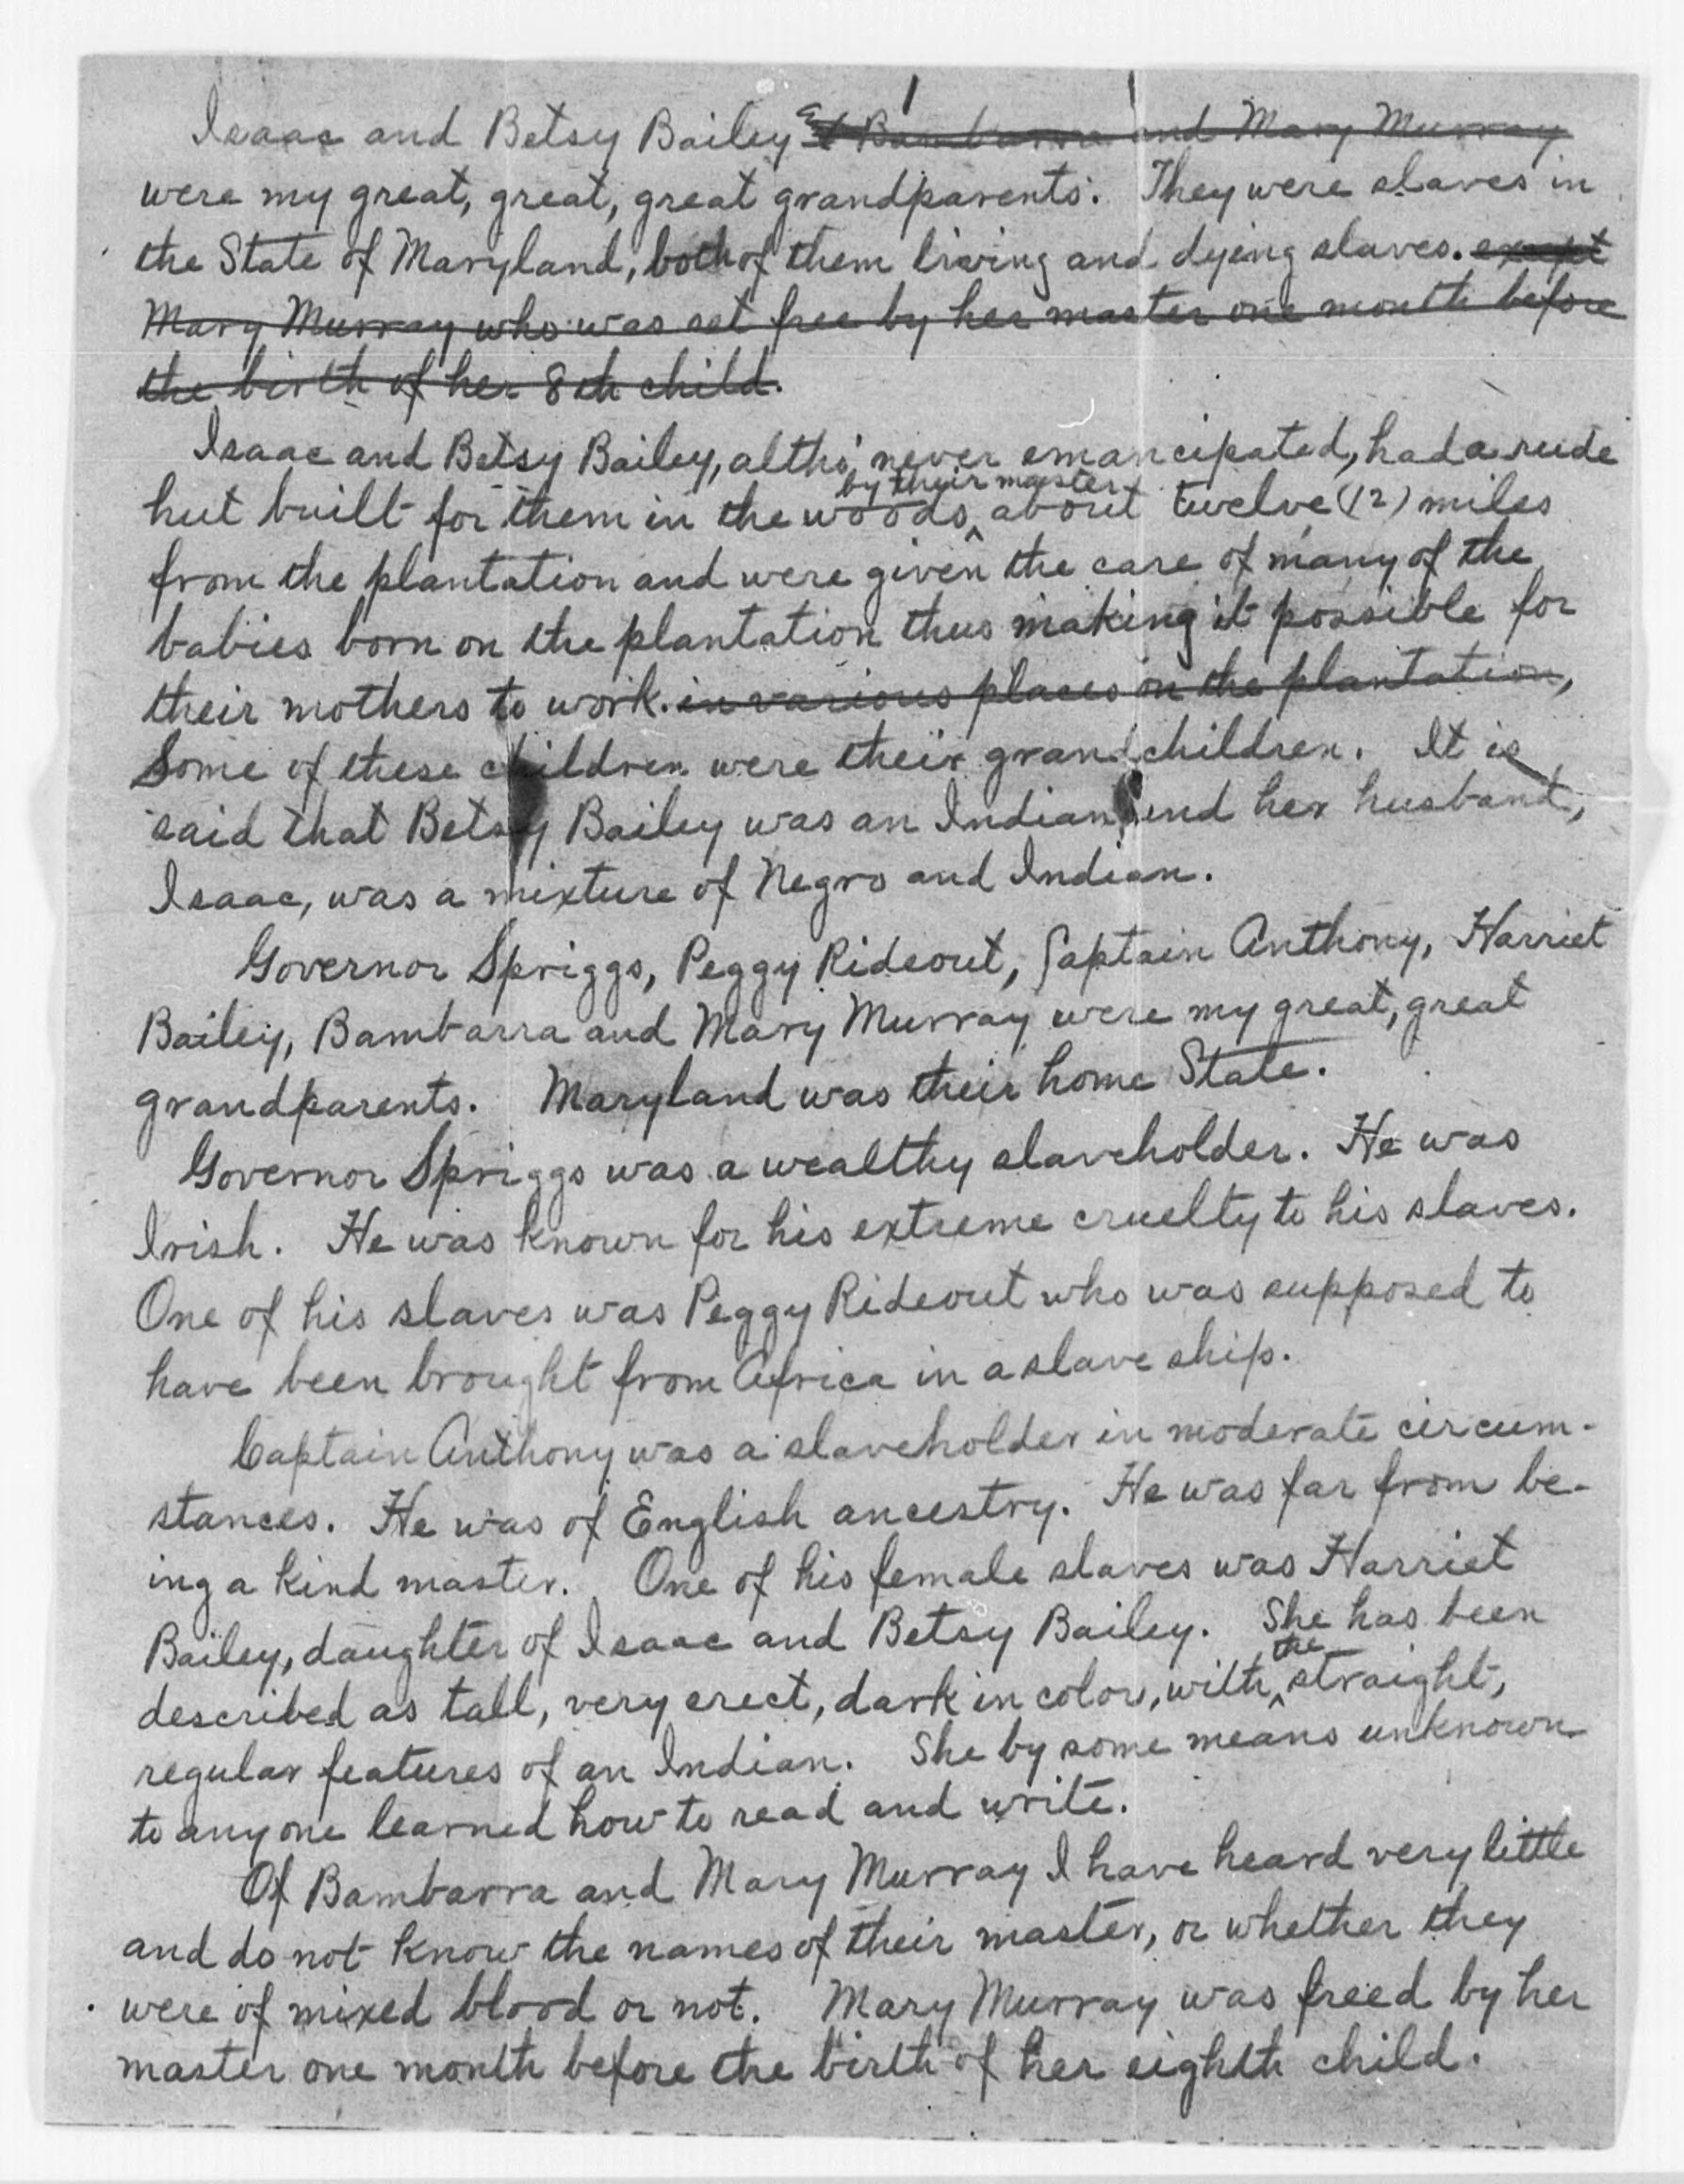 Isaac and Betsy Bailey Bambarra and Mary Murray
were my great, great, great grandparents. They were slaves in
the State of Maryland, both of them living and dying slaves. except
Mary Murray who was set free by her master one month before
the birth of her 8th child.
Isaac and Betsy Bailey, altho' never emancipated, had a rude
by their master
hut built for them in the woods, about twelve (12) miles
from the plantation and were given the care of many of the
babies born on the plantation thus making it possible for
their mothers to work. in various places on the plantation,
Some of these children were their grandchildren. It is
said that Betsy Bailey was an Indian and her husband,
Isaac, was a mixture of Negro and Indian.
Governor Spriggs, Peggy Rideout, Captain Anthony, Harriet
Bailey, Bambarra and Mary Murray were my great, great
grandparents. Maryland was their home State.
Governor Spriggs was a wealthy slaveholder. He was
Irish. He was known for his extreme cruelty to his slaves.
One of his slaves was Peggy Rideout who was supposed to
have been brought from Africa in a slave ship.
Captain Anthony was a slaveholder in moderate circum-
stances. He was of English ancestry. He was far from be-
ing a kind master. One of his female slaves was Harriet
Bailey, daughter of Isaac and Betsy Bailey. She has been
the
described as tall, very erect, dark in color, with straight,
regular features of an Indian. She by some means unknown
to anyone learned how to read and write.
Of Bambarra and Mary Murray I have heard very little
and do not know the names of their master, or whether they
were of mixed blood or not. Mary Murray was freed by her
master one month before the birth of her eighth child.